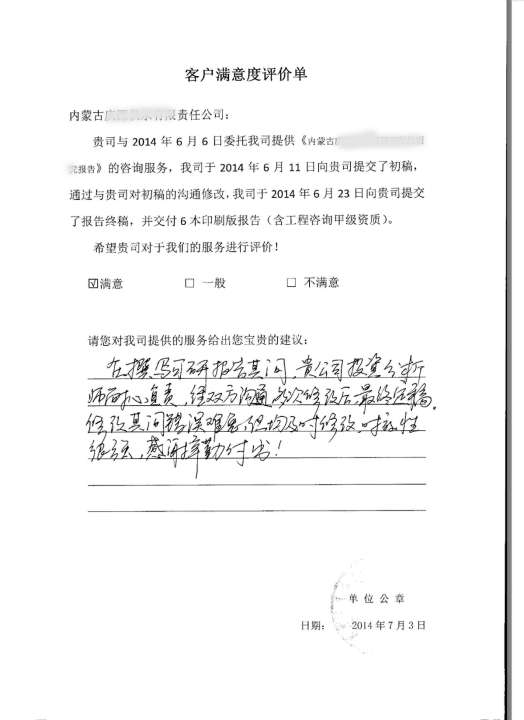 客户满意度评价单
内蒙古 有限责任公司：
贵司与 2014 年 6 月 6 日委托我司提供《内蒙古
究报告》的咨询服务，我司于 2014 年 6 月 11 日向贵司提交了初稿，
通过与贵司对初稿的沟通修改，我司于 2014 年 6 月 23 日向贵司提交
了报告终稿，并交付 6 本印刷版报告（含工程咨询甲级资质）。
希望贵司对于我们的服务进行评价！
☑满意 □ 一般 □ 不满意
请您对我司提供的服务给出您宝贵的建议：
在撰写可研报告其间，贵公司投资分析
师耐心负责，经双方沟通多次修改后最终定稿。
修改其间错误难免，但均及时修改，时效性
很强，感谢辛勤付出！
单位公章
日期： 2014 年 7 月 3 日